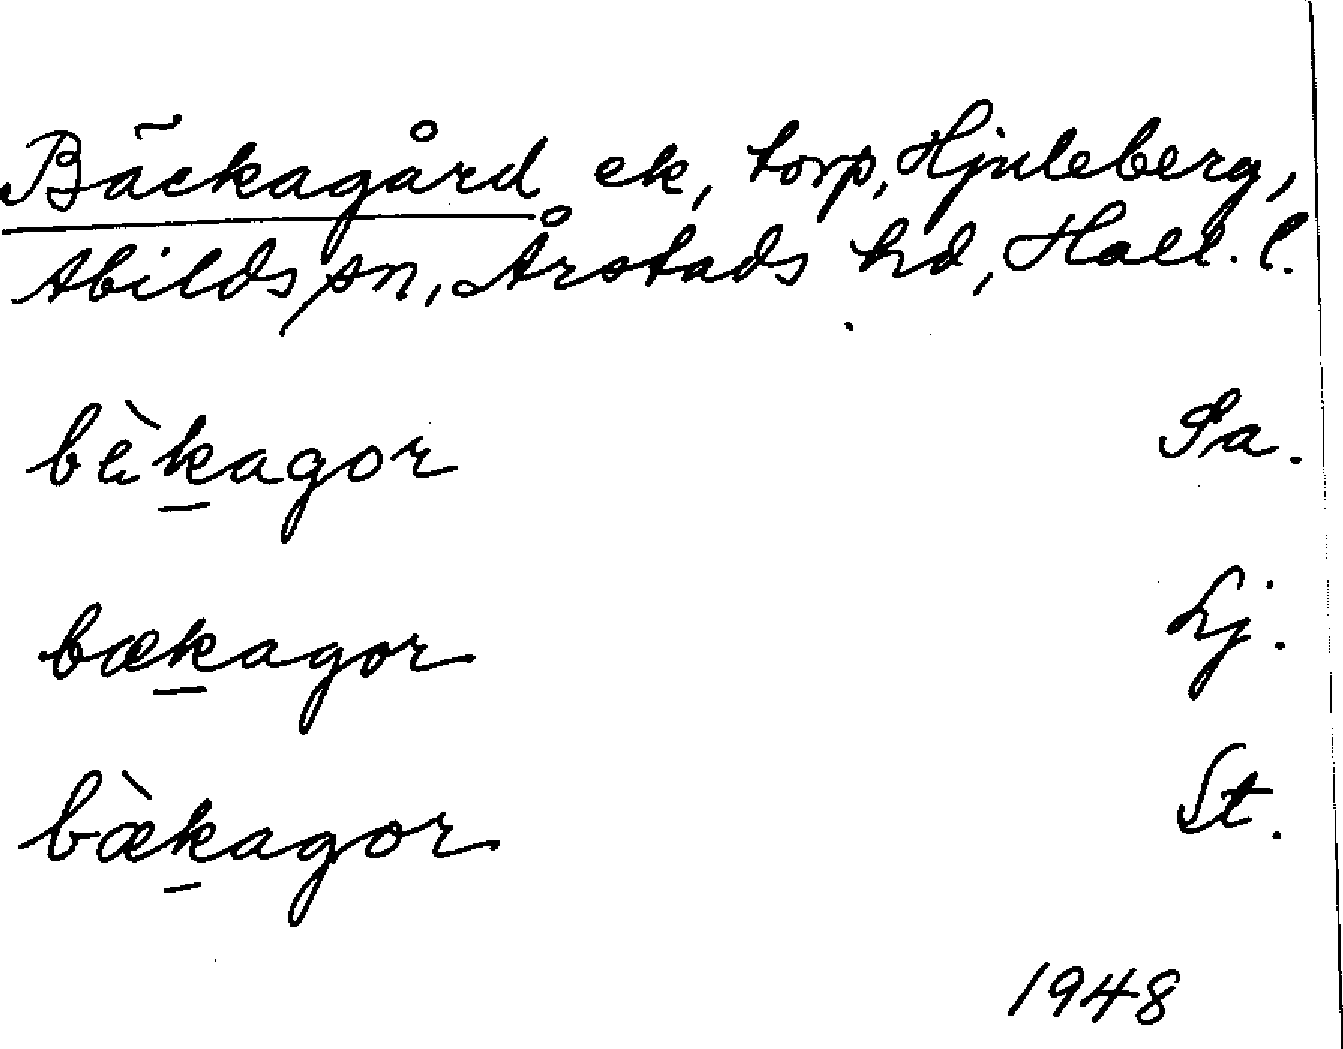 Bäckagård ek, torp, Hjuleberg,
Abilds sn, Årstads hd, Hall. l.
bæ̀k̲agor Sa.
bæk̲agor Lj.
bæ̀k̲agor St.
1948